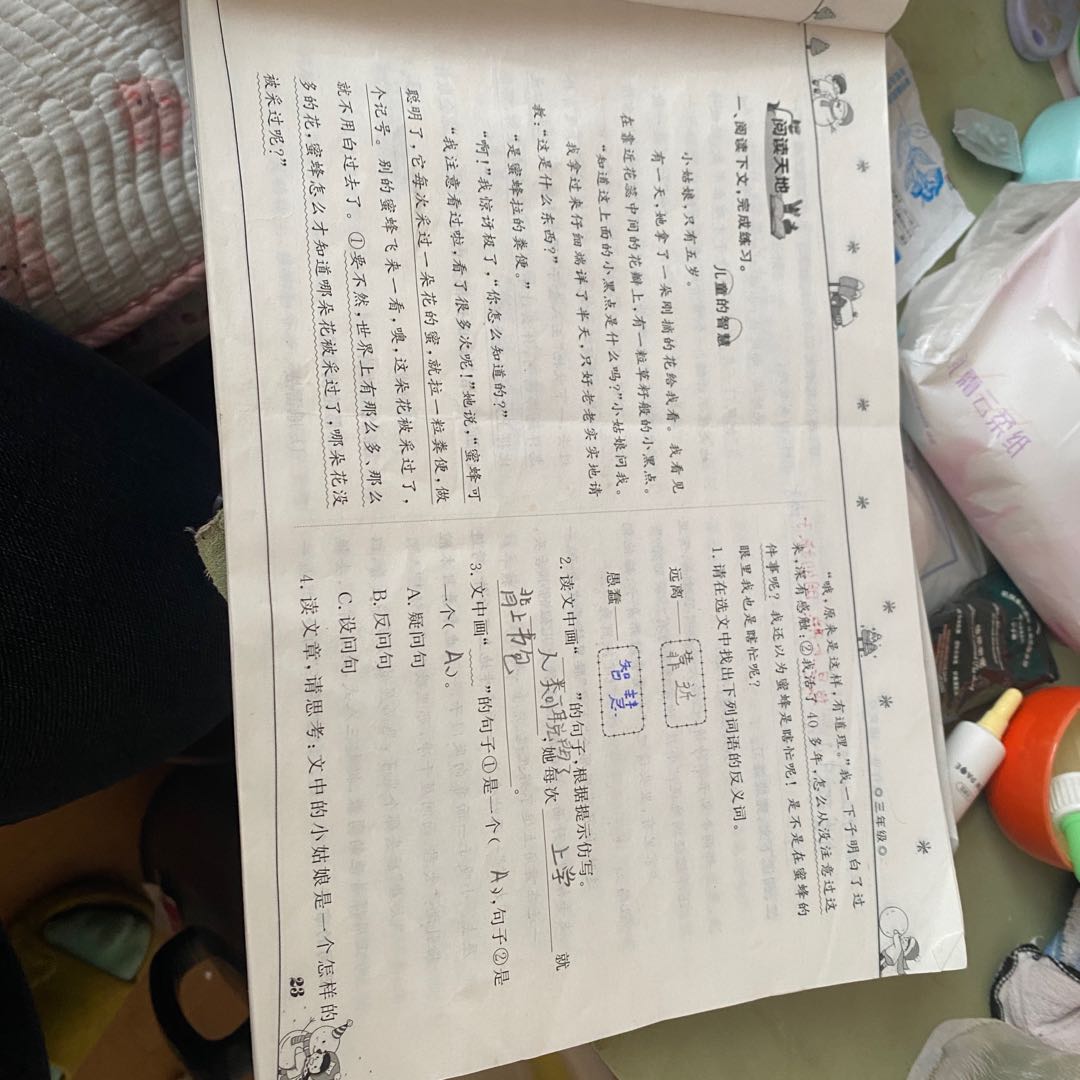 三年级
阅读天地
一、阅读下文,完成练习。
儿童的智慧
小姑娘,只有五岁。
有一天,她拿了一朵刚摘的花给我看。我看见
在靠近花蕊中间的花瓣上,有一粒草籽般的小黑点。
“知道这上面的小黑点是什么吗?”小姑娘问我。
我拿过来仔细端详了半天,只好老老实实地请
教:“这是什么东西?”
“是蜜蜂拉的粪便。”
“啊!”我惊讶极了,“你怎么知道的?”
“我注意看过啦,看了很多次呢!”她说,“蜜蜂可
聪明了,它每次采过一朵花的蜜,就拉一粒粪便,做
个记号。别的蜜蜂飞来一看,噢,这朵花被采过了,
就不用白过去了。①要不然,世界上有那么多、那么
多的花,蜜蜂怎么才知道哪朵花被采过了,哪朵花没
被采过呢?”
“哦,原来是这样,有道理。”我一下子明白了过
来,深有感触:②我活了40多年,怎么从没注意过这
件事呢?我还以为蜜蜂是瞎忙呢!是不是在蜜蜂的
眼里我也是瞎忙呢?
1. 请在选文中找出下列词语的反义词。
远离——靠近
愚蠢——智慧
2. 读文中画“”的句子,根据提示仿写。
人类可聪明了,她每次上学就
背上书包。
3. 文中画“”的句子①是一个(A),句子②是
一个(A)。
A. 疑问句
B. 反问句
C. 设问句
4. 读文章,请思考:文中的小姑娘是一个怎样的
23